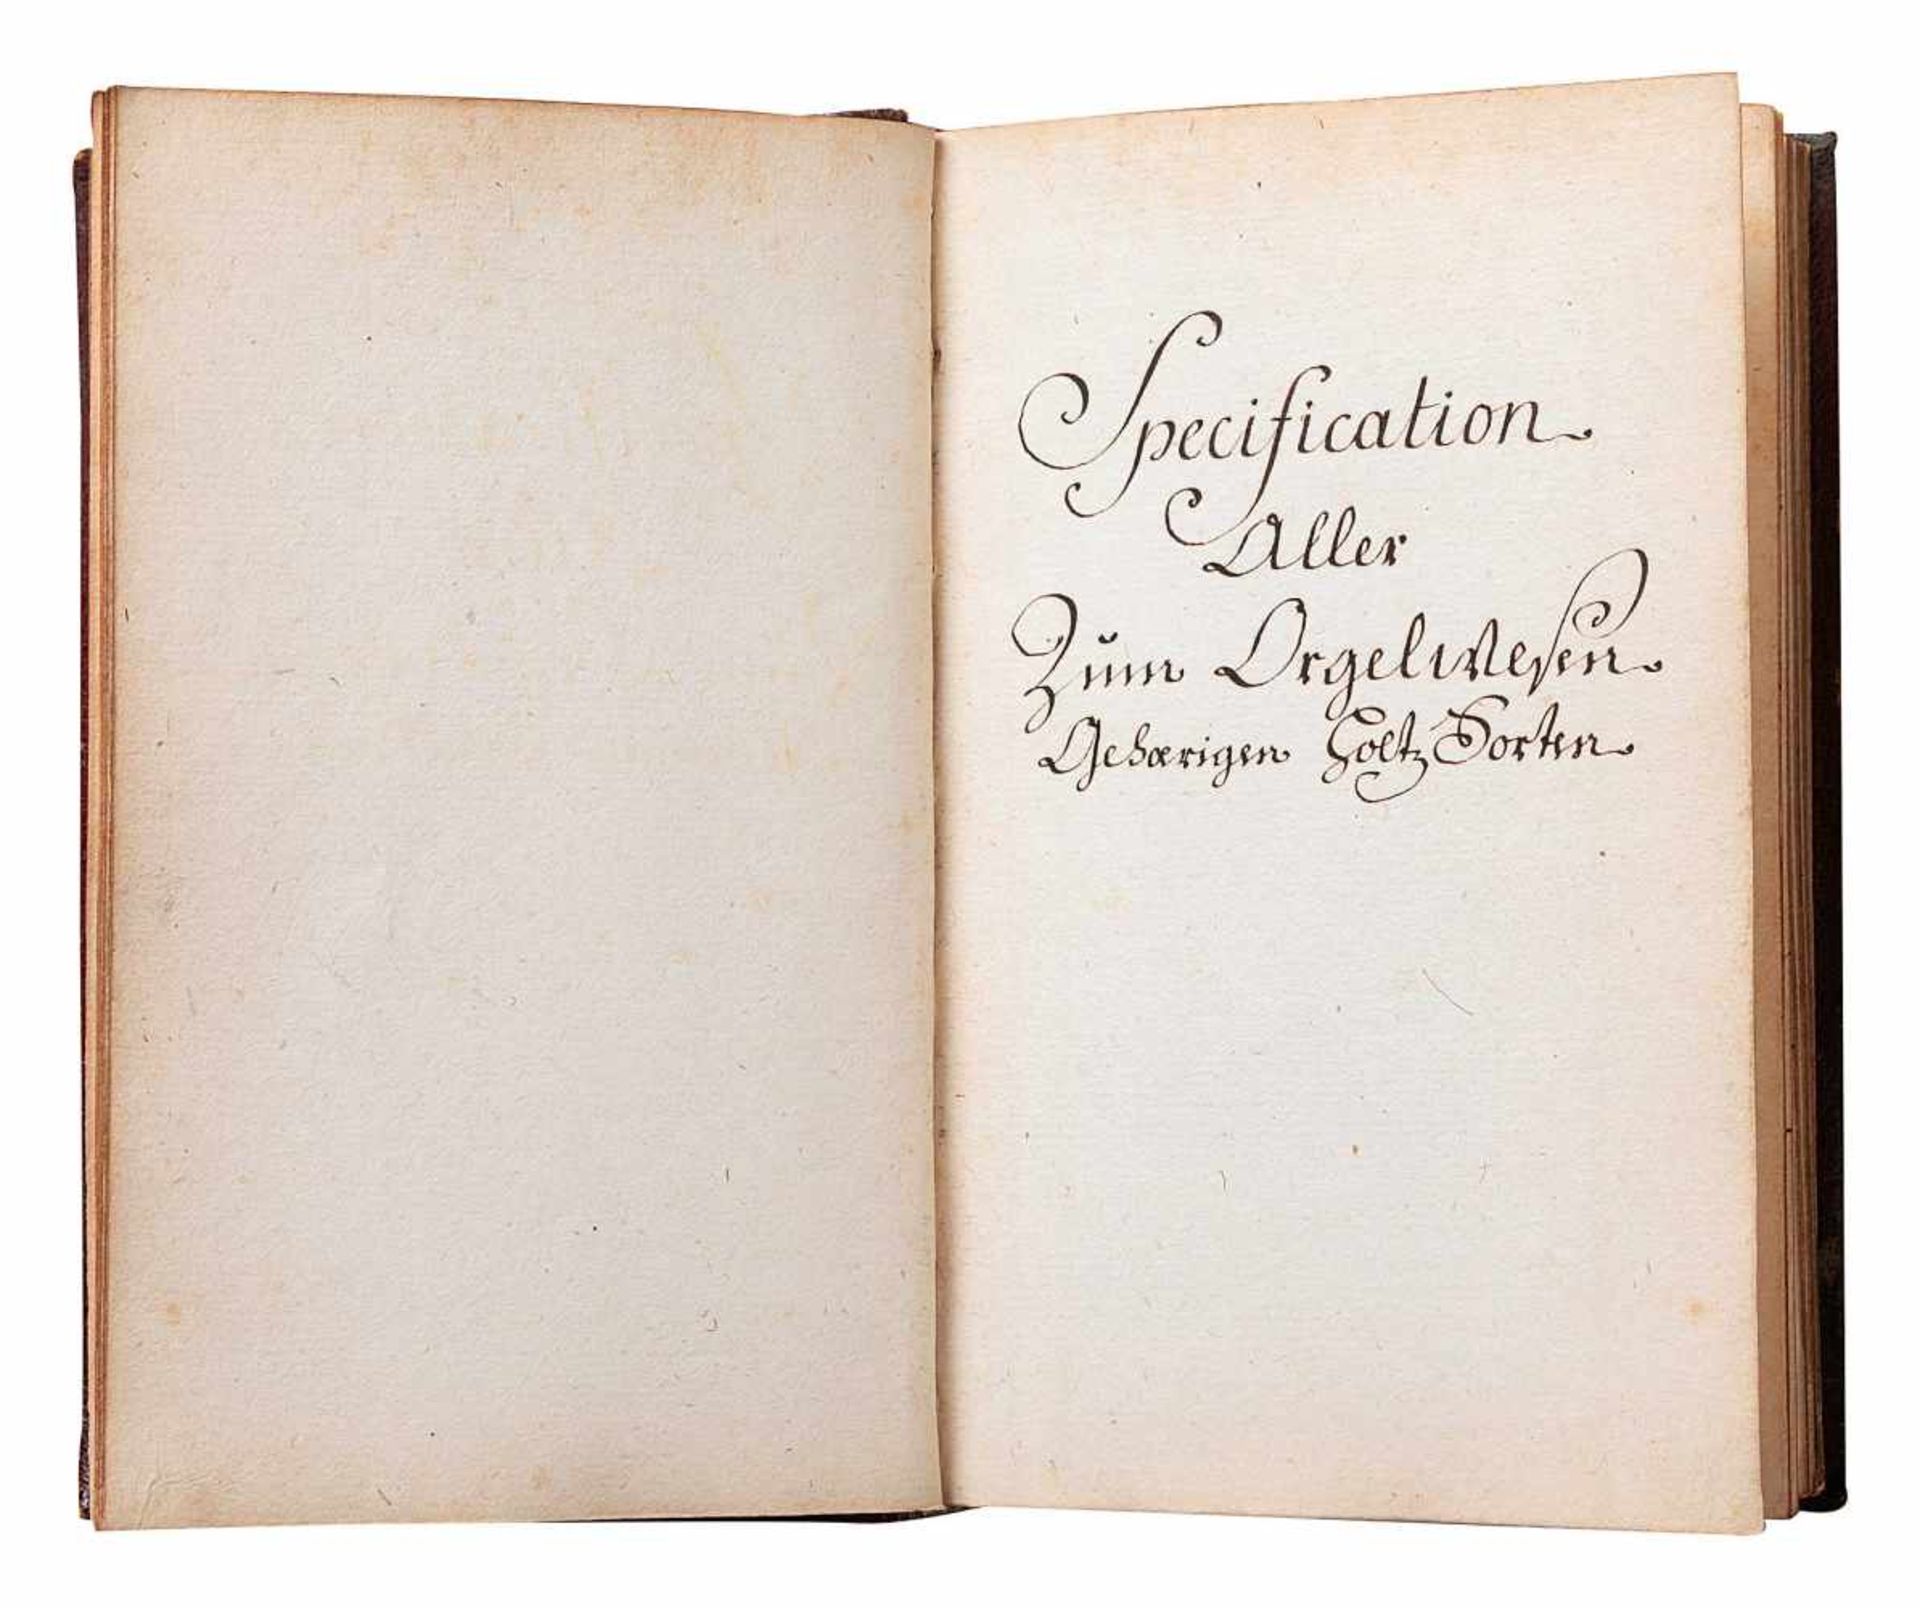 Specification
Aller
Zum Orgelwesen
Gehærigen Holtz Sorten